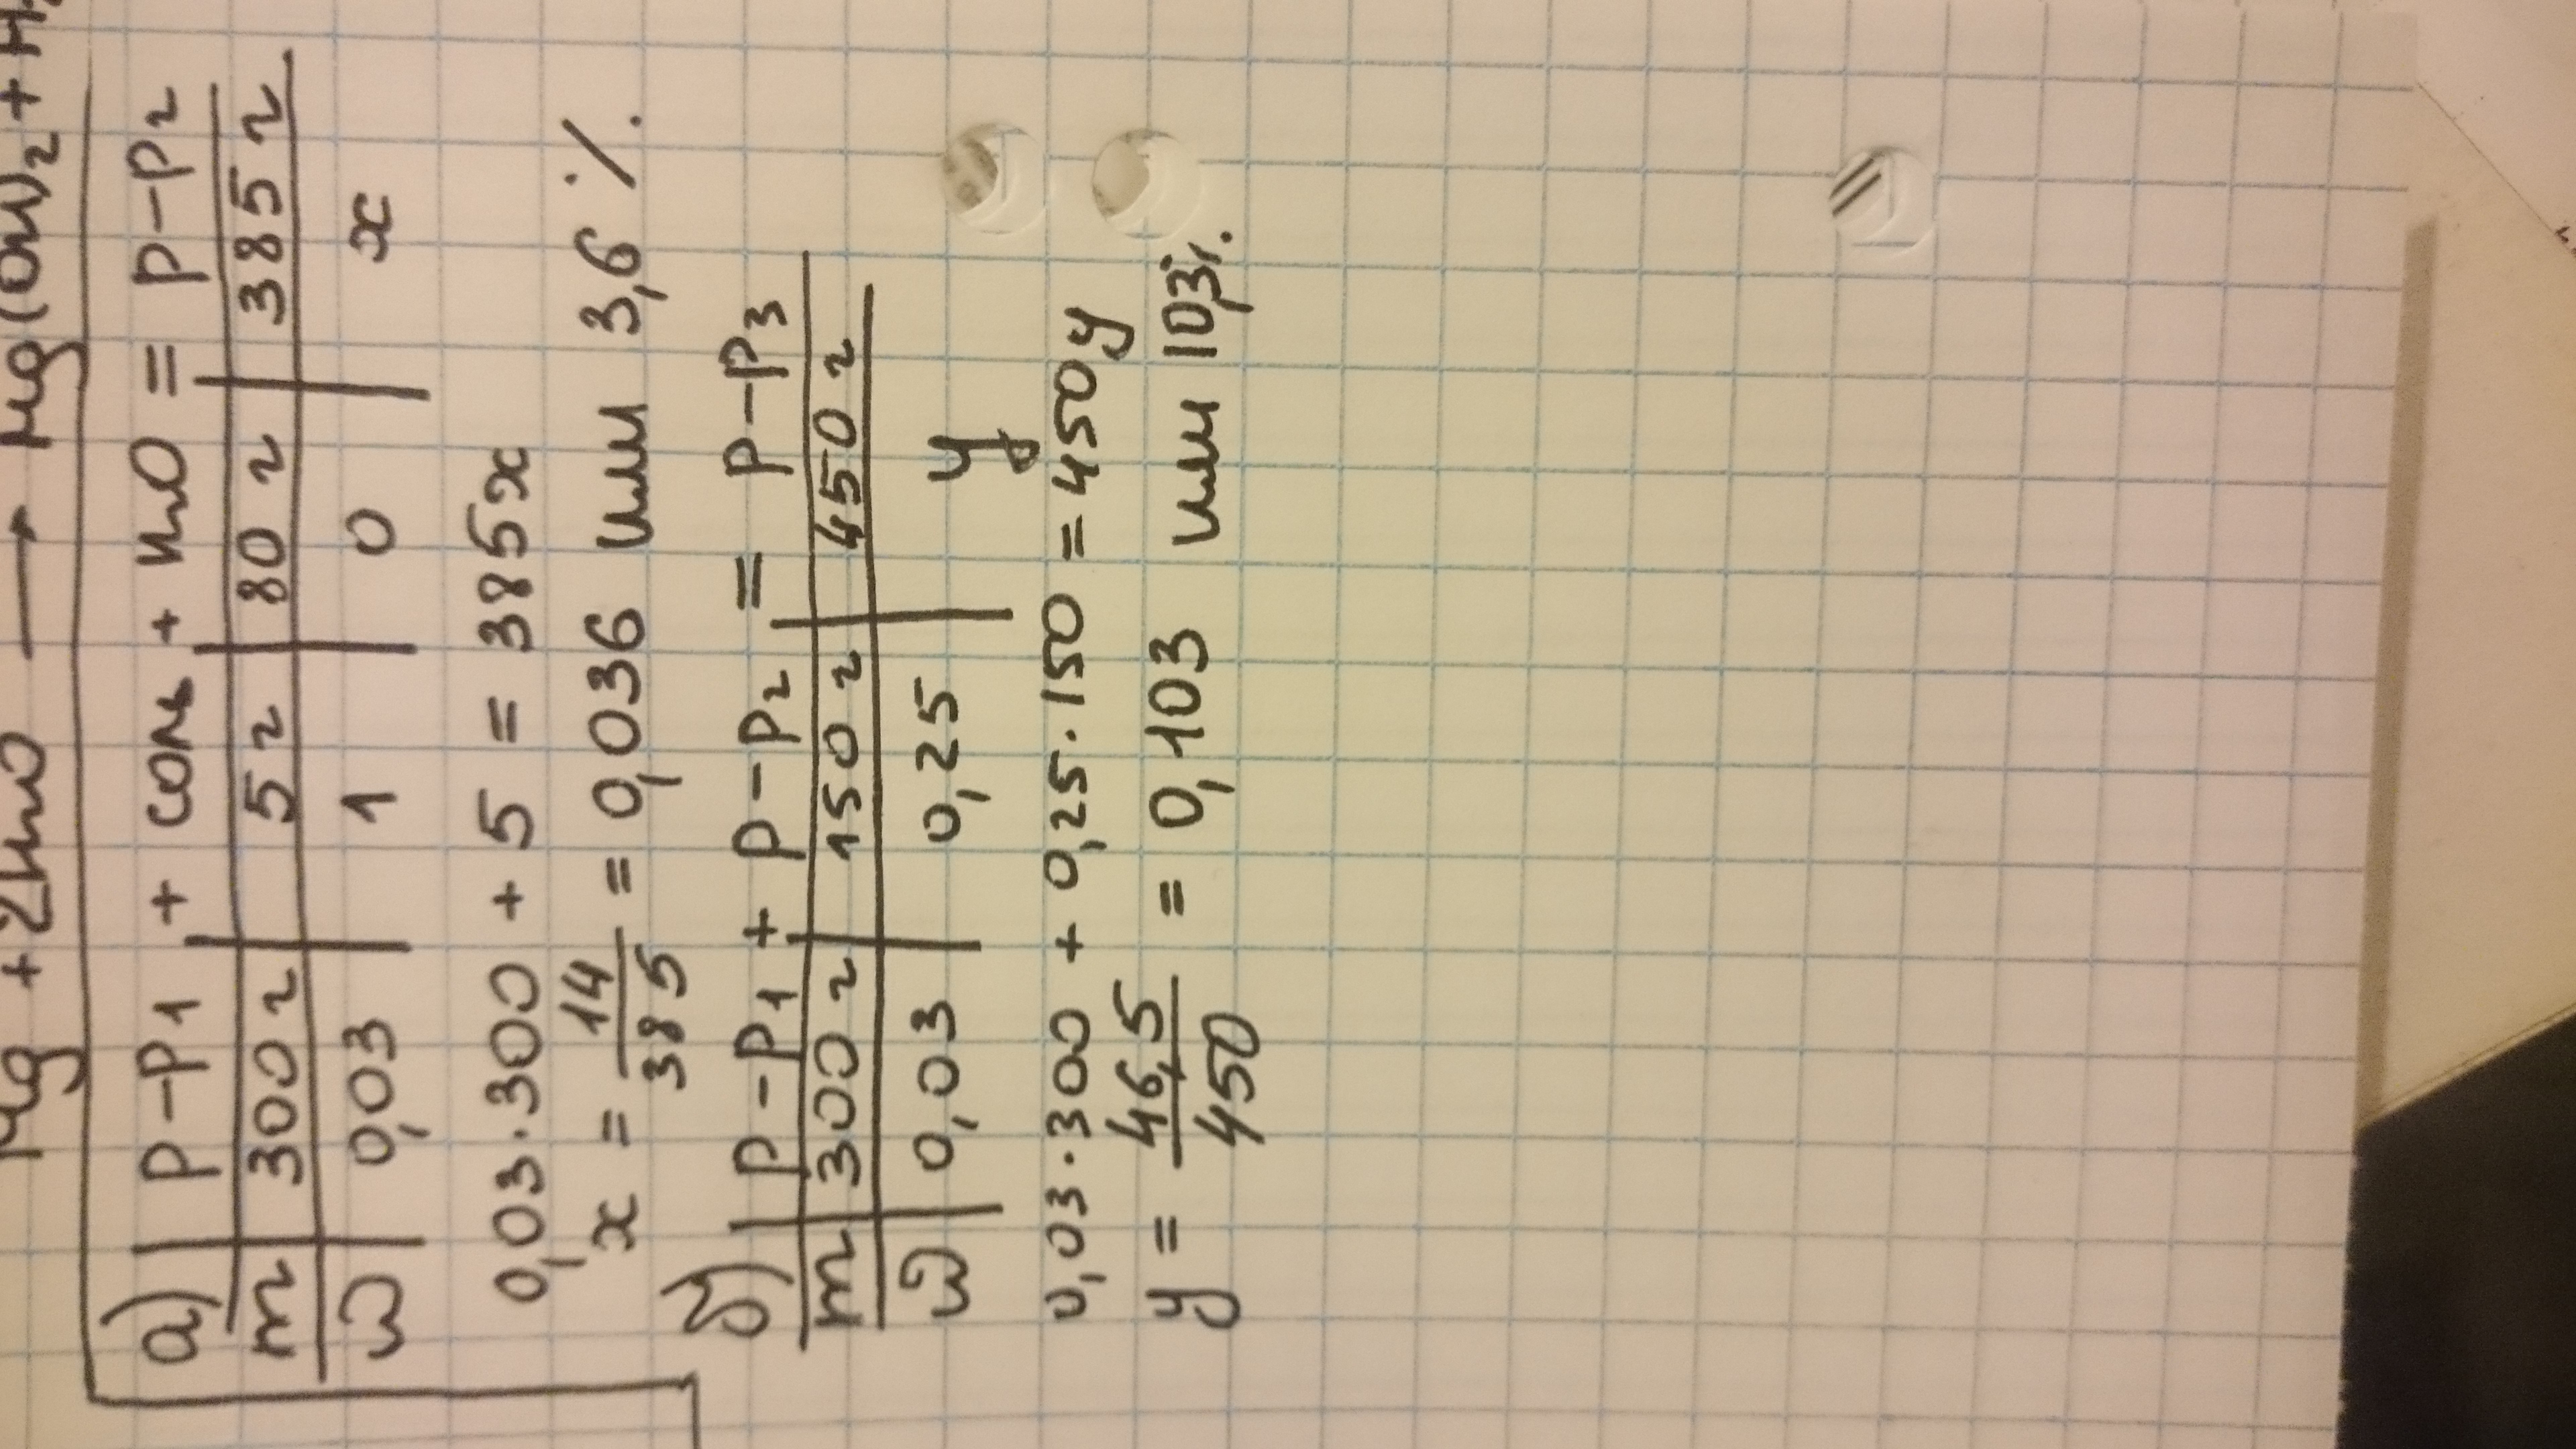 Mg + 2H₂O → Mg(OH)₂ + H₂
а) р-р₁ + соль + H₂O = р-р₂
m 300 г 5 г 80 г 385 г
ω 0,03 1 0 x
0,03·300 + 5 = 385x
x = 14/385 = 0,036 или 3,6 %.
б) р-р₁ + р-р₂ = р-р₃
m 300 г 150 г 450 г
ω 0,03 0,25 y
0,03·300 + 0,25·150 = 450y
y = 46,5/450 = 0,103 или 10,3%.